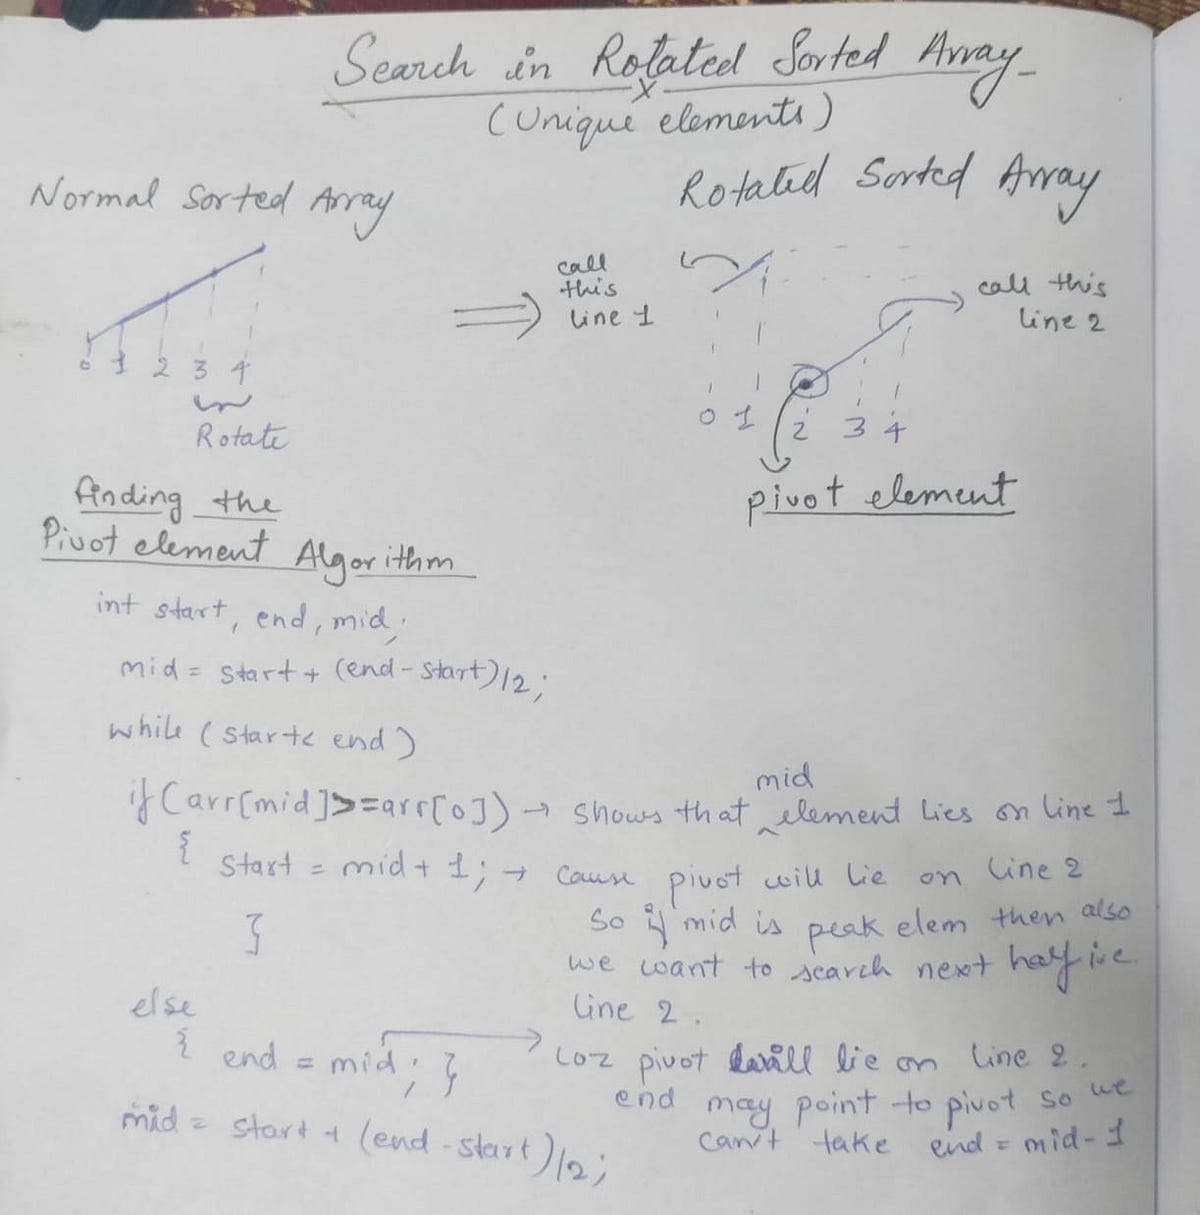 Search in Rotated Sorted Array
x
(Unique elements)
Normal Sorted Array
Rotated Sorted Array
call
this
line 1
call this
line 2
0 1 2 3 4
Rotate
0 1 2 3 4
pivot element
finding the
Pivot element Algorithm
int start, end, mid;
mid = start + (end - start)/2;
while (start < end)
if (arr[mid] >= arr[0]) → shows that mid element lies on line 1
{ start = mid + 1; → Cause pivot will lie on line 2
So if mid is peak elem then also
}
we want to search next half i.e.
line 2.
else
{ end = mid; } → coz pivot will lie on line 2.
end may point to pivot so we
can't take end = mid - 1
mid = start + (end - start)/2;